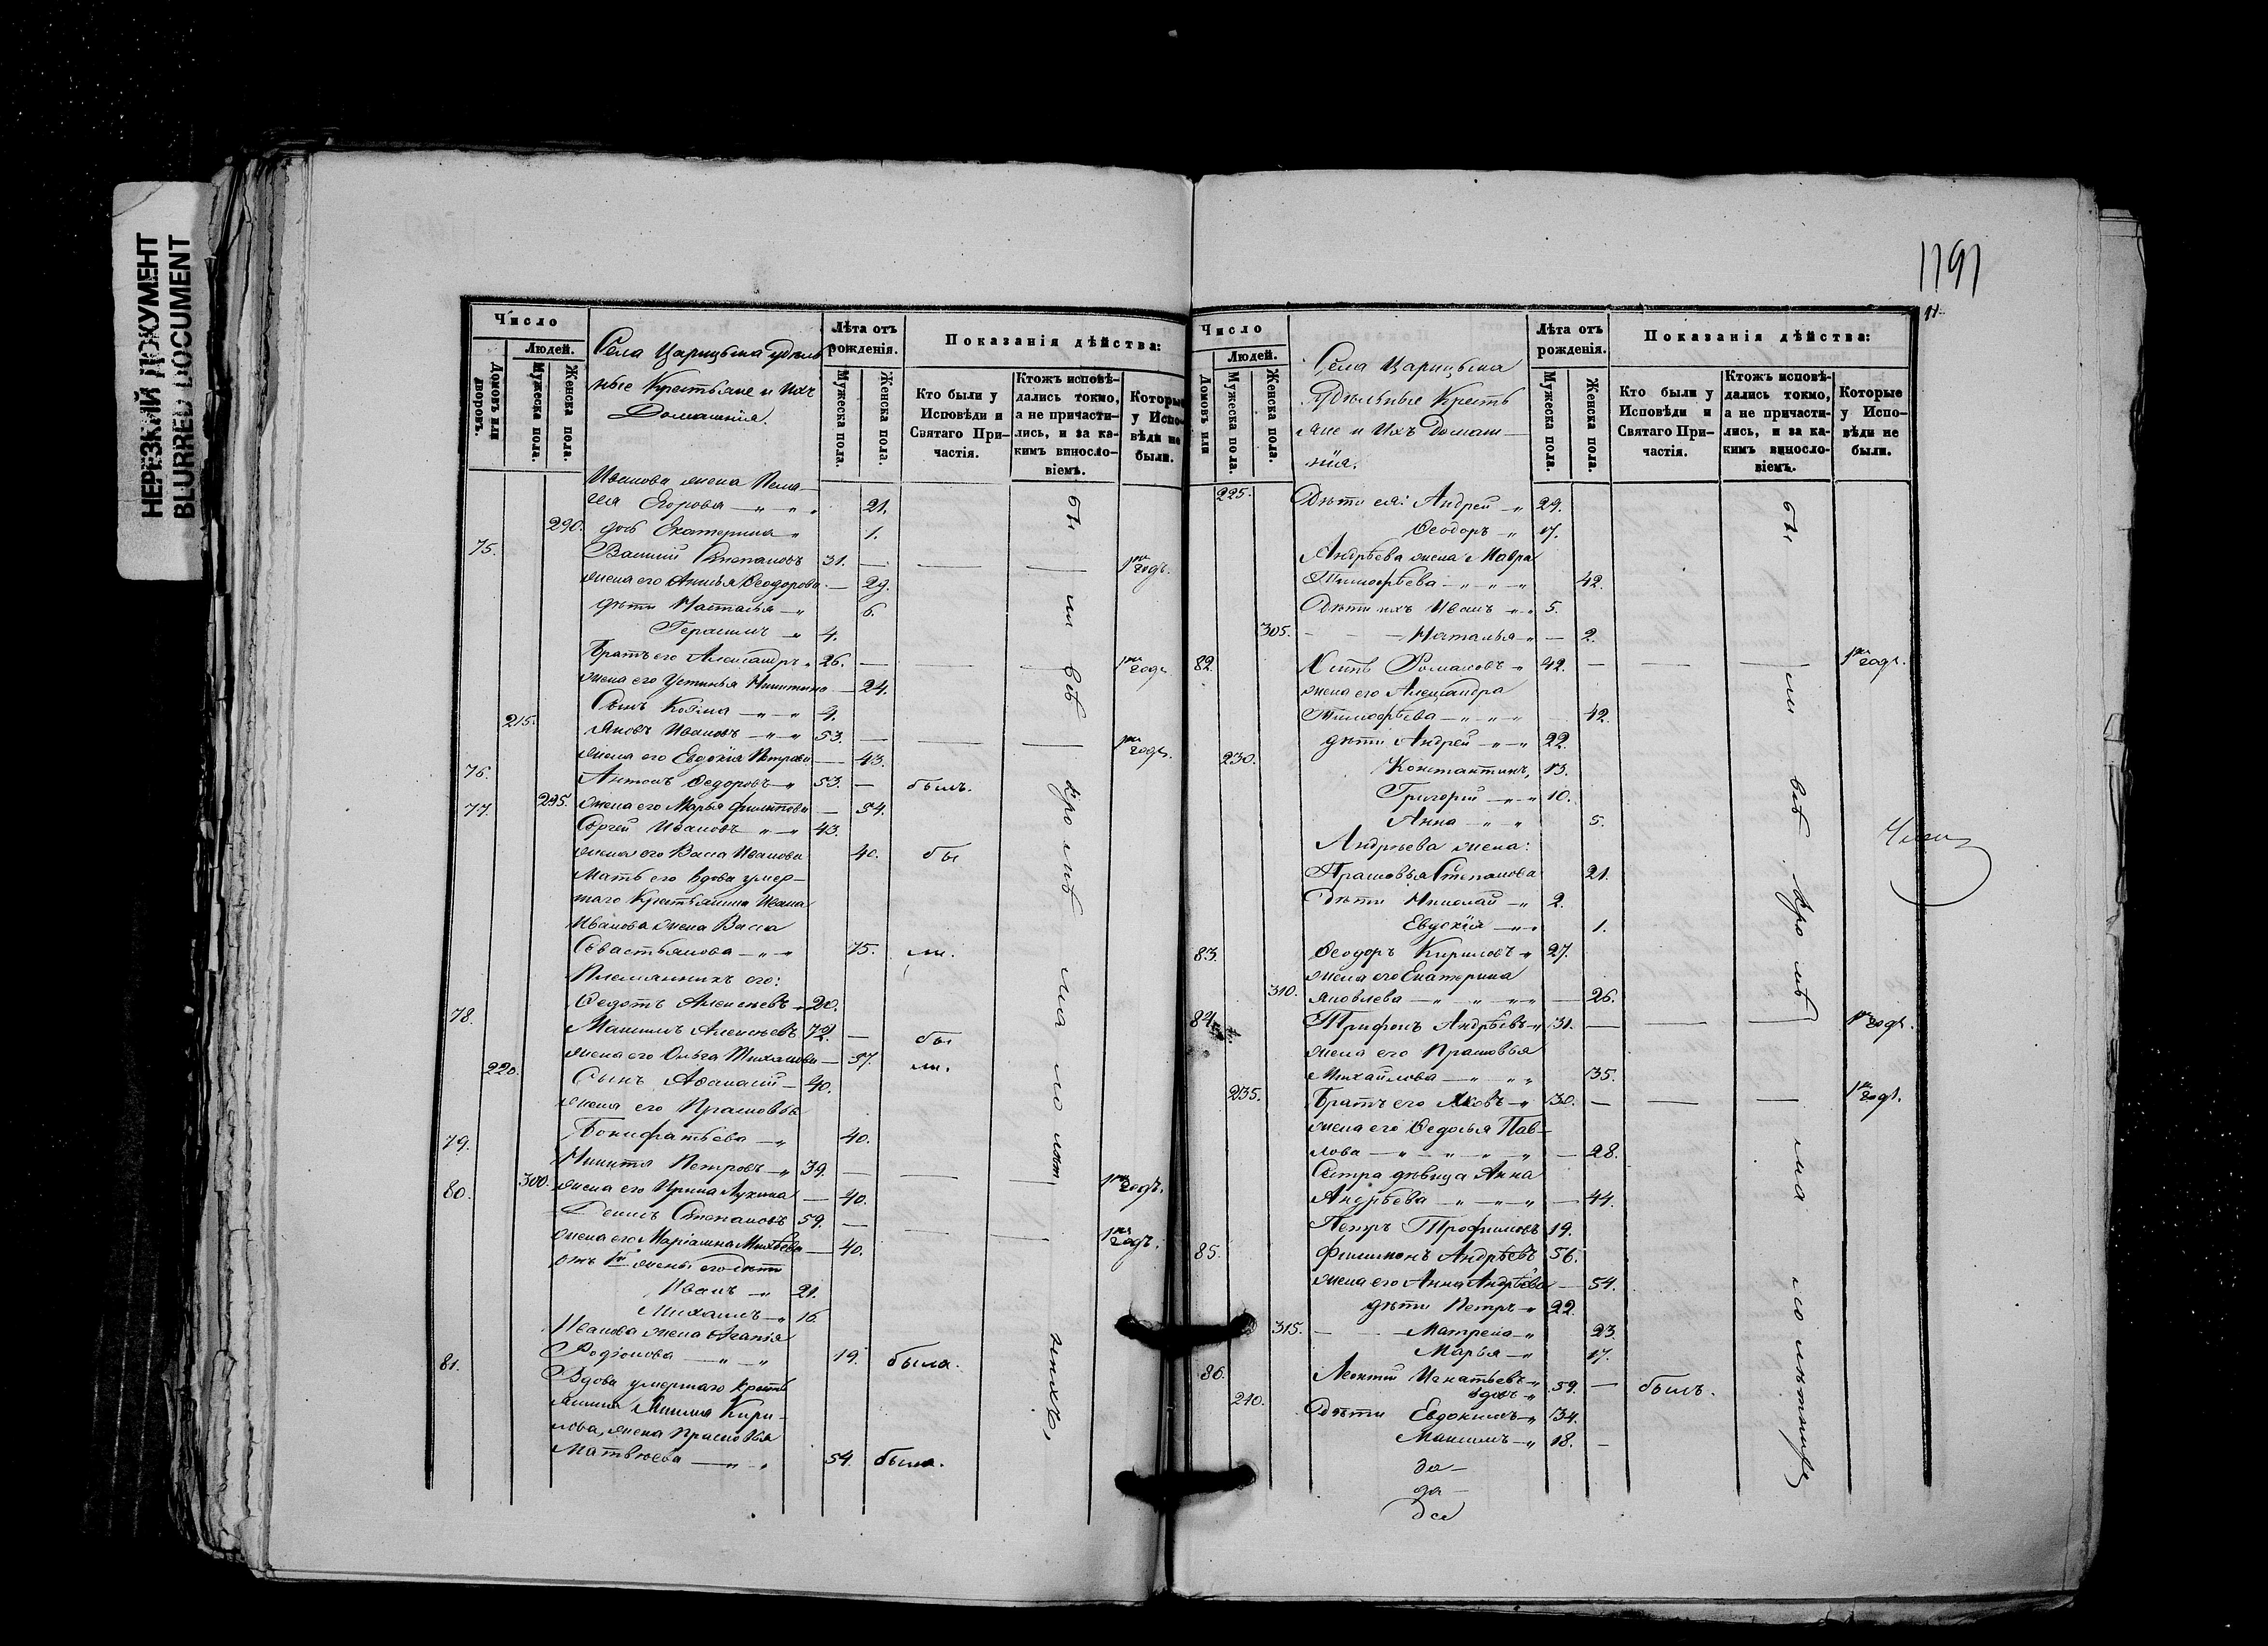 НЕРЕЗКИЙ ДОКУМЕНТ
BLURRED DOCUMENT
Число
Людей.
Домовъ или дворовъ.
Мужеска пола.
Женска пола.
Села Царицына удѣль
ные Крестьяне и ихъ
Домашнія.
Лѣта отъ рожденія.
Мужеска пола.
Женска пола.
Показанія дѣйства:
Кто были у Исповѣди и Святаго Причастія.
Ктожъ исповѣдались токмо, а не причастились, и за какимъ винословіемъ.
Которые у Исповѣди не были.
Иванова жена Пела-
гея Егорова 21.
290. дочь Екатерина 1.
75. Василій Степановъ 31. 1й годъ.
жена его Анисья Ѳеодорова 29.
дѣти Наталья 6.
Герасимъ 4.
Братъ его Александръ 26. 1й годъ
жена его Устинья Никитина 24.
Сынъ Козма 4.
215. Яковъ Ивановъ 53. 1й годъ.
жена его Евдокія Петрова 43.
76. Антонъ Ѳедоровъ 53. былъ.
77. 295. жена его Марья Филипова 54.
Сергей Ивановъ 43.
жена его Васса Иванова 40. бы
Мать его вдова умер-
шаго Крестьянина Ивана
Иванова жена Васса
Севастьянова 75. ли.
Племянникъ его:
Ѳедотъ Алексеевъ 20.
78. Максимъ Алексеевъ 72. бы
жена его Ольга Михайлова 57. ли.
220. Сынъ Аѳанасій 40.
жена его Прасковья
Бонифатьева 40.
79. Никита Петровъ 39. 1й годъ.
80. 300. жена его Ирина Лукина 40.
Денисъ Степановъ 59. 1й годъ.
жена его Маріамна Михѣева 40.
отъ 1й жены его дѣти
Иванъ 21.
Михаилъ 16
Иванова жена Агапія
Родіонова 19. была.
81. Вдова умершаго Кресть
янина Кири-
лова, жена Прасковья
Матвѣева 54. была.
бы ли всѣ кромѣ ма ло лѣт нихъ,
1191
Число
Людей.
Домовъ или
Мужеска пола.
Женска пола.
Села Царицына
Удѣльные Кресть
яне и ихъ домаш-
нія.
Лѣта отъ рожденія.
Мужеска пола.
Женска пола.
Показанія дѣйства:
Кто были у Исповѣди и Святаго Причастія.
Ктожъ исповѣдались токмо, а не причастились, и за какимъ винословіемъ.
Которые у Исповѣди не были.
225. Дѣти ея: Андрей 29.
Ѳеодоръ 17.
Андрѣева жена Мавра
Тимофѣева 42.
Дѣти ихъ Иванъ 5.
305. Наталья 2.
82. Романовъ 42. 1й годъ.
жена его Александра
Тимофѣева 42.
дѣти Андрей 22.
230. Константинъ 13.
Григорій 10.
Анна 5.
Андрѣева жена:
Прасковья Степанова 21.
Дѣти Николай 2.
Евдокія 1.
83. Ѳеодоръ Кириловъ 27.
жена его Екатерина
310. Яковлева 26.
84. Трифонъ Андрѣевъ 31. 1й годъ.
жена его Прасковья
Михайлова 35.
235. Братъ его Яковъ 30. 1й годъ.
жена его Ѳедосья Пав-
лова 28.
Сестра дѣвица Анна
Андрѣева 44.
Петръ Трофимовъ 19.
85. Филимонъ Андрѣевъ 56.
жена его Анна Андрѣева 54.
дѣти Петръ 22.
315. Матрена 23.
Марья 17.
86. Леонтій Игнатьевъ
вдовъ 59. былъ.
240. Дѣти Евдокимъ 34.
Максимъ 18.
бы ли всѣ кро мѣ ма ло лѣтнихъ